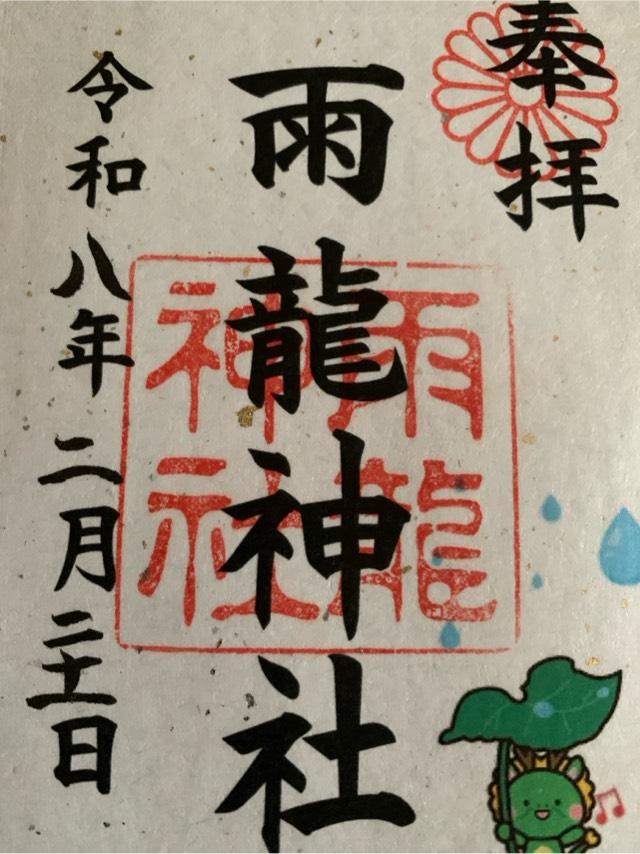 奉拝
雨龍神社
雨龍
神社
令和八年二月二十一日